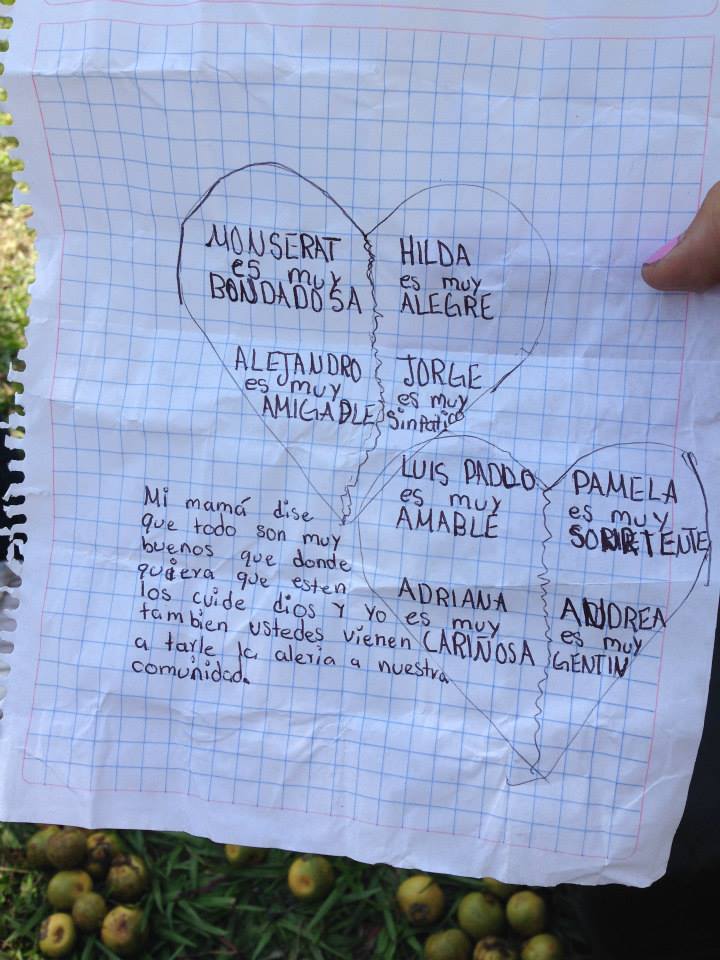 MONSERAT
es muy
BONDADOSA
HILDA
es muy
ALEGRE
ALEJANDRO
es muy
AMIGABLE
JORGE
es muy
Sinpatico
LUIS PABLO
es muy
AMABLE
PAMELA
es muy
SORRETENTE
ADRIANA
es muy
CARIÑOSA
ANDREA
es muy
GENTIN
Mi mamá dise
que todo son muy
buenos que donde
quiera que esten
los cuide dios y yo
tambien ustedes vienen
a tarle la aleria a nuestra
comunidad.